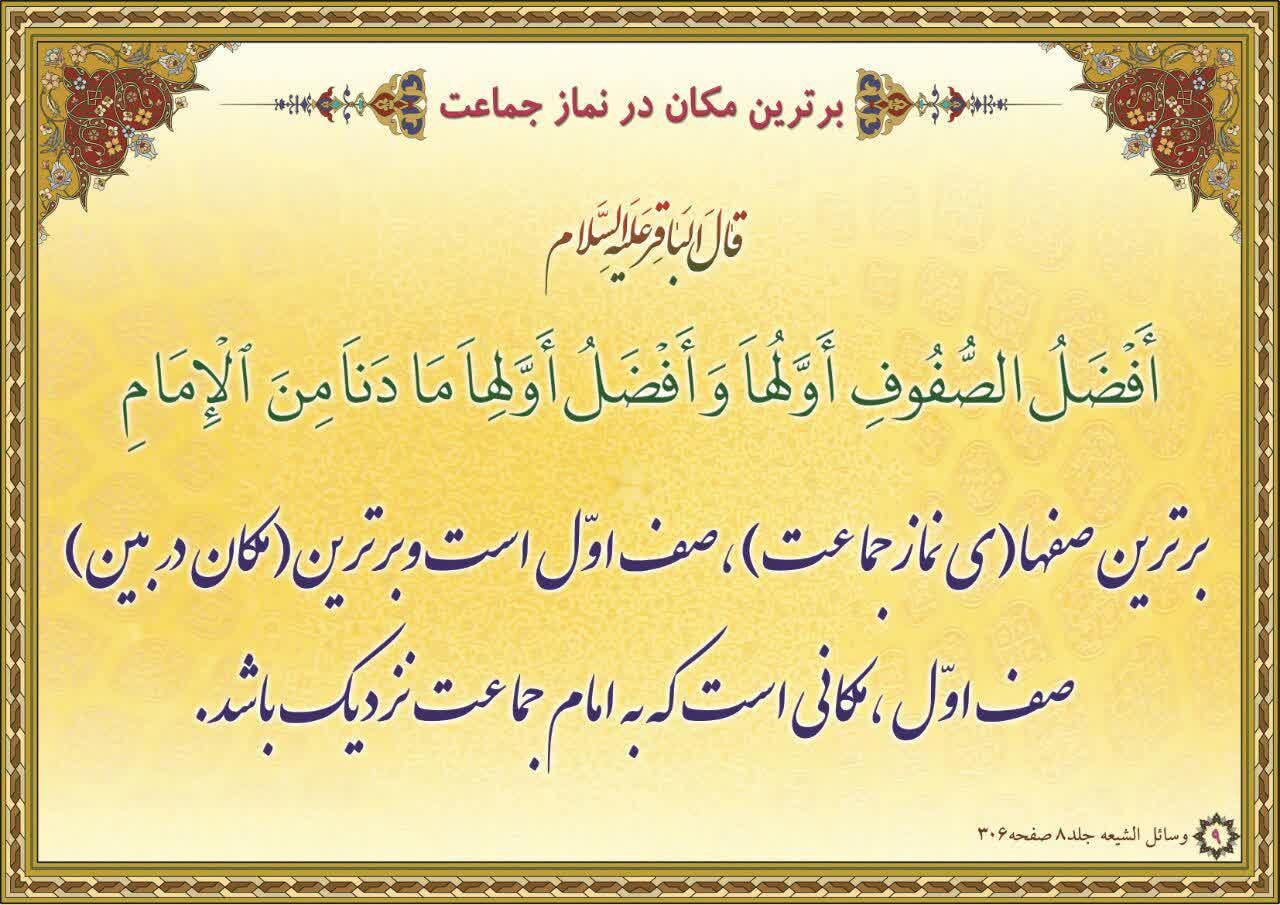 برترین مکان در نماز جماعت
قَالَ الْبَاقِرُ عَلَيْهِ السَّلَام
أَفْضَلُ الصُّفُوفِ أَوَّلُهَا وَ أَفْضَلُ أَوَّلِهَا مَا دَنَا مِنَ ٱلْإِمَامِ
برترین صفها(ی نماز جماعت)، صف اوّل است و برترین (مکان در بین)
صف اوّل، مکانی است که به امام جماعت نزدیک باشد.
۹ وسائل الشیعه جلد۸ صفحه۳۰۶